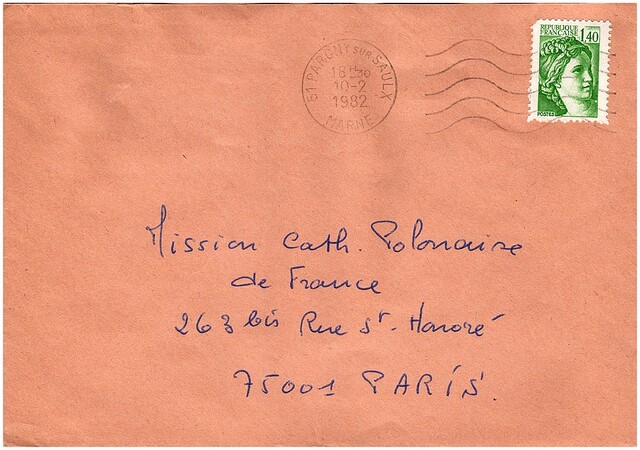 51 PARGNY SUR SAULX
18H30
10-2
1982
MARNE
REPUBLIQUE
FRANÇAISE
1,40
POSTES
Mission Cath. Polonaise
de France
263 bis Rue St-Honoré
75001 PARIS.